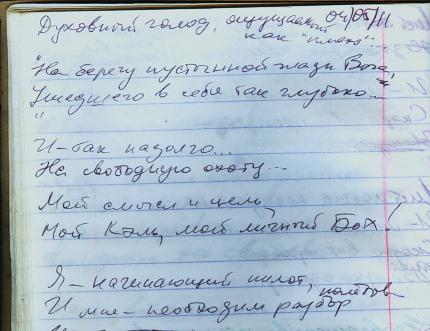 Духовный голод, ощущаемый 04/05/11
как "плохо"...
"На берегу пустынной жажды Бога,
Ушедшего в себя так глубоко...
"
И - так надолго...
На свободную охоту...
Мой смысл и цель,
Мой Кэль, мой личный БоХ!
Я - начинающий пилот,
И мне - необходим разбор полётов